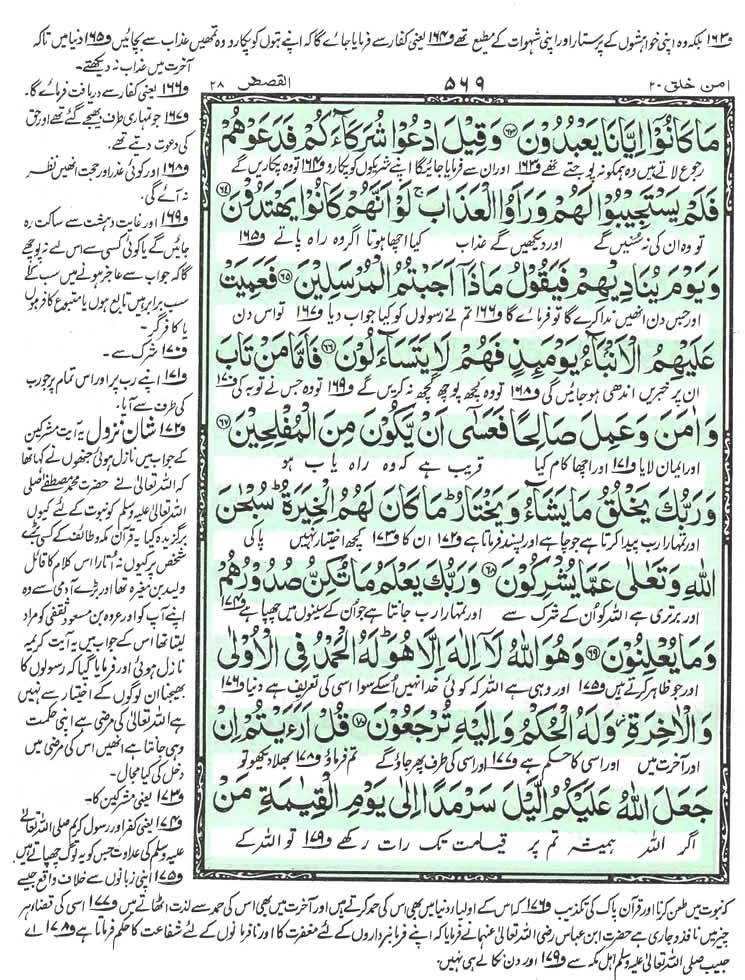 و١٦٣ بلکہ وہ اپنی خواہشوں کے پرستار اور اپنی شہوات کے مطیع تھے و١٦٤ یعنی کفار سے فرمایا جائے گا کہ اپنے بتوں کو پکارو وہ تمھیں عذاب سے بچائیں و١٦٥ دنیا میں تاکہ
آخرت میں عذاب نہ دیکھتے۔
امن خلق ٢٠
٥٦٩
القصص ٢٨
مَا كَانُوْۤا اِیَّانَا یَعْبُدُوْنَ ۝٦٣ وَ قِیْلَ ادْعُوْا شُرَكَآءَكُمْ فَدَعَوْهُمْ
رجوع لاتے ہیں وہ ہم کو نہ پوجتے تھے و١٦٣ اور ان سے فرمایا جائیگا اپنے شریکوں کو پکارو و١٦٤ تو وہ پکاریں گے
فَلَمْ یَسْتَجِیْبُوْا لَهُمْ وَ رَاَوُا الْعَذَابَ ۚ لَوْ اَنَّهُمْ كَانُوْا یَهْتَدُوْنَ ۝٦٤
تو وہ ان کی نہ سُنیں گے اور دیکھیں گے عذاب کیا اچھا ہوتا اگر وہ راہ پاتے و١٦٥
وَ یَوْمَ یُنَادِیْهِمْ فَیَقُوْلُ مَا ذَاۤ اَجَبْتُمُ الْمُرْسَلِیْنَ ۝٦٥ فَعَمِیَتْ
اور جس دن انھیں ندا کرے گا تو فرمائے گا و١٦٦ تم نے رسولوں کو کیا جواب دیا و١٦٧ تو اس دن
عَلَیْهِمُ الْاَنْۢبَآءُ یَوْمَىِٕذٍ فَهُمْ لَا یَتَسَآءَلُوْنَ ۝٦٦ فَاَمَّا مَنْ تَابَ
ان پر خبریں اندھی ہو جائیں گی و١٦٨ تو وہ کچھ پوچھ گچھ نہ کریں گے و١٦٩ تو وہ جس نے توبہ کی و١٧٠
وَ اٰمَنَ وَ عَمِلَ صَالِحًا فَعَسٰۤى اَنْ یَّكُوْنَ مِنَ الْمُفْلِحِیْنَ ۝٦٧
اور ایمان لایا و١٧١ اور اچھا کام کیا قریب ہے کہ وہ راہ یاب ہو
وَ رَبُّكَ یَخْلُقُ مَا یَشَآءُ وَ یَخْتَارُ ؕ مَا كَانَ لَهُمُ الْخِیَرَةُ ؕ سُبْحٰنَ
اور تمہارا رب پیدا کرتا ہے جو چاہے اور پسند فرماتا ہے و١٧٢ ان کا و١٧٣ کچھ اختیار نہیں پاکی
اللّٰهِ وَ تَعٰلٰى عَمَّا یُشْرِكُوْنَ ۝٦٨ وَ رَبُّكَ یَعْلَمُ مَا تُكِنُّ صُدُوْرُهُمْ
اور برتری ہے اللہ کو اُن کے شرک سے اور تمہارا رب جانتا ہے جو اُن کے سینوں میں چھپا ہے و١٧٤
وَ مَا یُعْلِنُوْنَ ۝٦٩ وَ هُوَ اللّٰهُ لَاۤ اِلٰهَ اِلَّا هُوَ ؕ لَهُ الْحَمْدُ فِی الْاُوْلٰى
اور جو ظاہر کرتے ہیں و١٧٥ اور وہی ہے اللہ کہ کوئی خدا نہیں اُسکے سوا اسی کی تعریف ہے دنیا و١٧٦
وَ الْاٰخِرَةِ ؗ وَ لَهُ الْحُكْمُ وَ اِلَیْهِ تُرْجَعُوْنَ ۝٧٠ قُلْ اَرَءَیْتُمْ اِنْ
اور آخرت میں اور اسی کا حکم ہے و١٧٧ اور اسی کی طرف پھر جاؤ گے تم فرماؤ و١٧٨ بھلا دیکھو تو
جَعَلَ اللّٰهُ عَلَیْكُمُ الَّیْلَ سَرْمَدًا اِلٰى یَوْمِ الْقِیٰمَةِ مَنْ
اگر اللہ ہمیشہ تم پر قیامت تک رات رکھے و١٧٩ تو اللہ کے
و١٦٦ یعنی کفار سے دریافت فرمائے گا۔
و١٦٧ جو تمہاری طرف بھیجے گئے تھے اور حق
کی دعوت دیتے تھے۔
و١٦٨ اور کوئی عذر اور حجت انھیں نظر
نہ آئے گی۔
و١٦٩ اور غایت دہشت سے ساکت رہ
جائیں گے یا کوئی کسی سے اس لیے نہ پوچھے
گا کہ جواب سے عاجز ہونے میں سب کے
سب برابر ہیں تابع ہوں یا متبوع کافر ہوں
یا کافر گر۔
و١٧٠ شرک سے۔
و١٧١ اپنے رب پر اور اس تمام پر جو رب
کی طرف سے آیا۔
و١٧٢ شان نزول یہ آیت مشرکین
کے جواب میں نازل ہوئی جنھوں نے کہا تھا
کہ اللہ تعالیٰ نے حضرت محمد مصطفےٰ صلی
اللہ تعالیٰ علیہ وسلم کو نبوت کے لئے کیوں
برگزیدہ کیا یہ قرآن مکہ و طائف کے کسی بڑے
شخص پر کیوں نہ اُتارا اس کلام کا قائل
ولید بن مغیرہ تھا اور بڑے آدمی سے وہ
اپنے آپ کو اور عروہ بن مسعود ثقفی کو مراد
لیتا تھا اس کے جواب میں یہ آیت کریمہ
نازل ہوئی اور فرمایا گیا کہ رسولوں کا
بھیجنا ان لوگوں کے اختیار سے نہیں
ہے اللہ تعالیٰ کی مرضی ہے اپنی حکمت
وہی جانتا ہے انھیں اس کی مرضی میں
دخل کی کیا مجال۔
و١٧٣ یعنی مشرکین کا۔
و١٧٤ یعنی کفر اور رسول کریم صلی اللہ تعالیٰ
علیہ وسلم کی عداوت جس کو یہ لوگ چھپاتے ہیں
و١٧٥ اپنی زبانوں سے خلاف واقع جیسے
کہ نبوت میں طعن کرنا اور قرآن پاک کی تکذیب و١٧٦ کہ اس کے اولیاء دنیا میں بھی اس کی حمد کرتے ہیں اور آخرت میں بھی اس کی حمد سے لذت اٹھاتے ہیں و١٧٧ اسی کی قضا ہر
چیز میں نافذ و جاری ہے حضرت ابن عباس رضی اللہ تعالیٰ عنہما نے فرمایا کہ اپنے فرمانبرداروں کے لئے مغفرت کا اور نافرمانوں کے لئے شفاعت کا حکم فرماتا ہے و١٧٨ اے
حبیب صلی اللہ تعالیٰ علیہ وسلم اہل مکہ سے و١٧٩ اور دن نکالے ہی نہیں۔